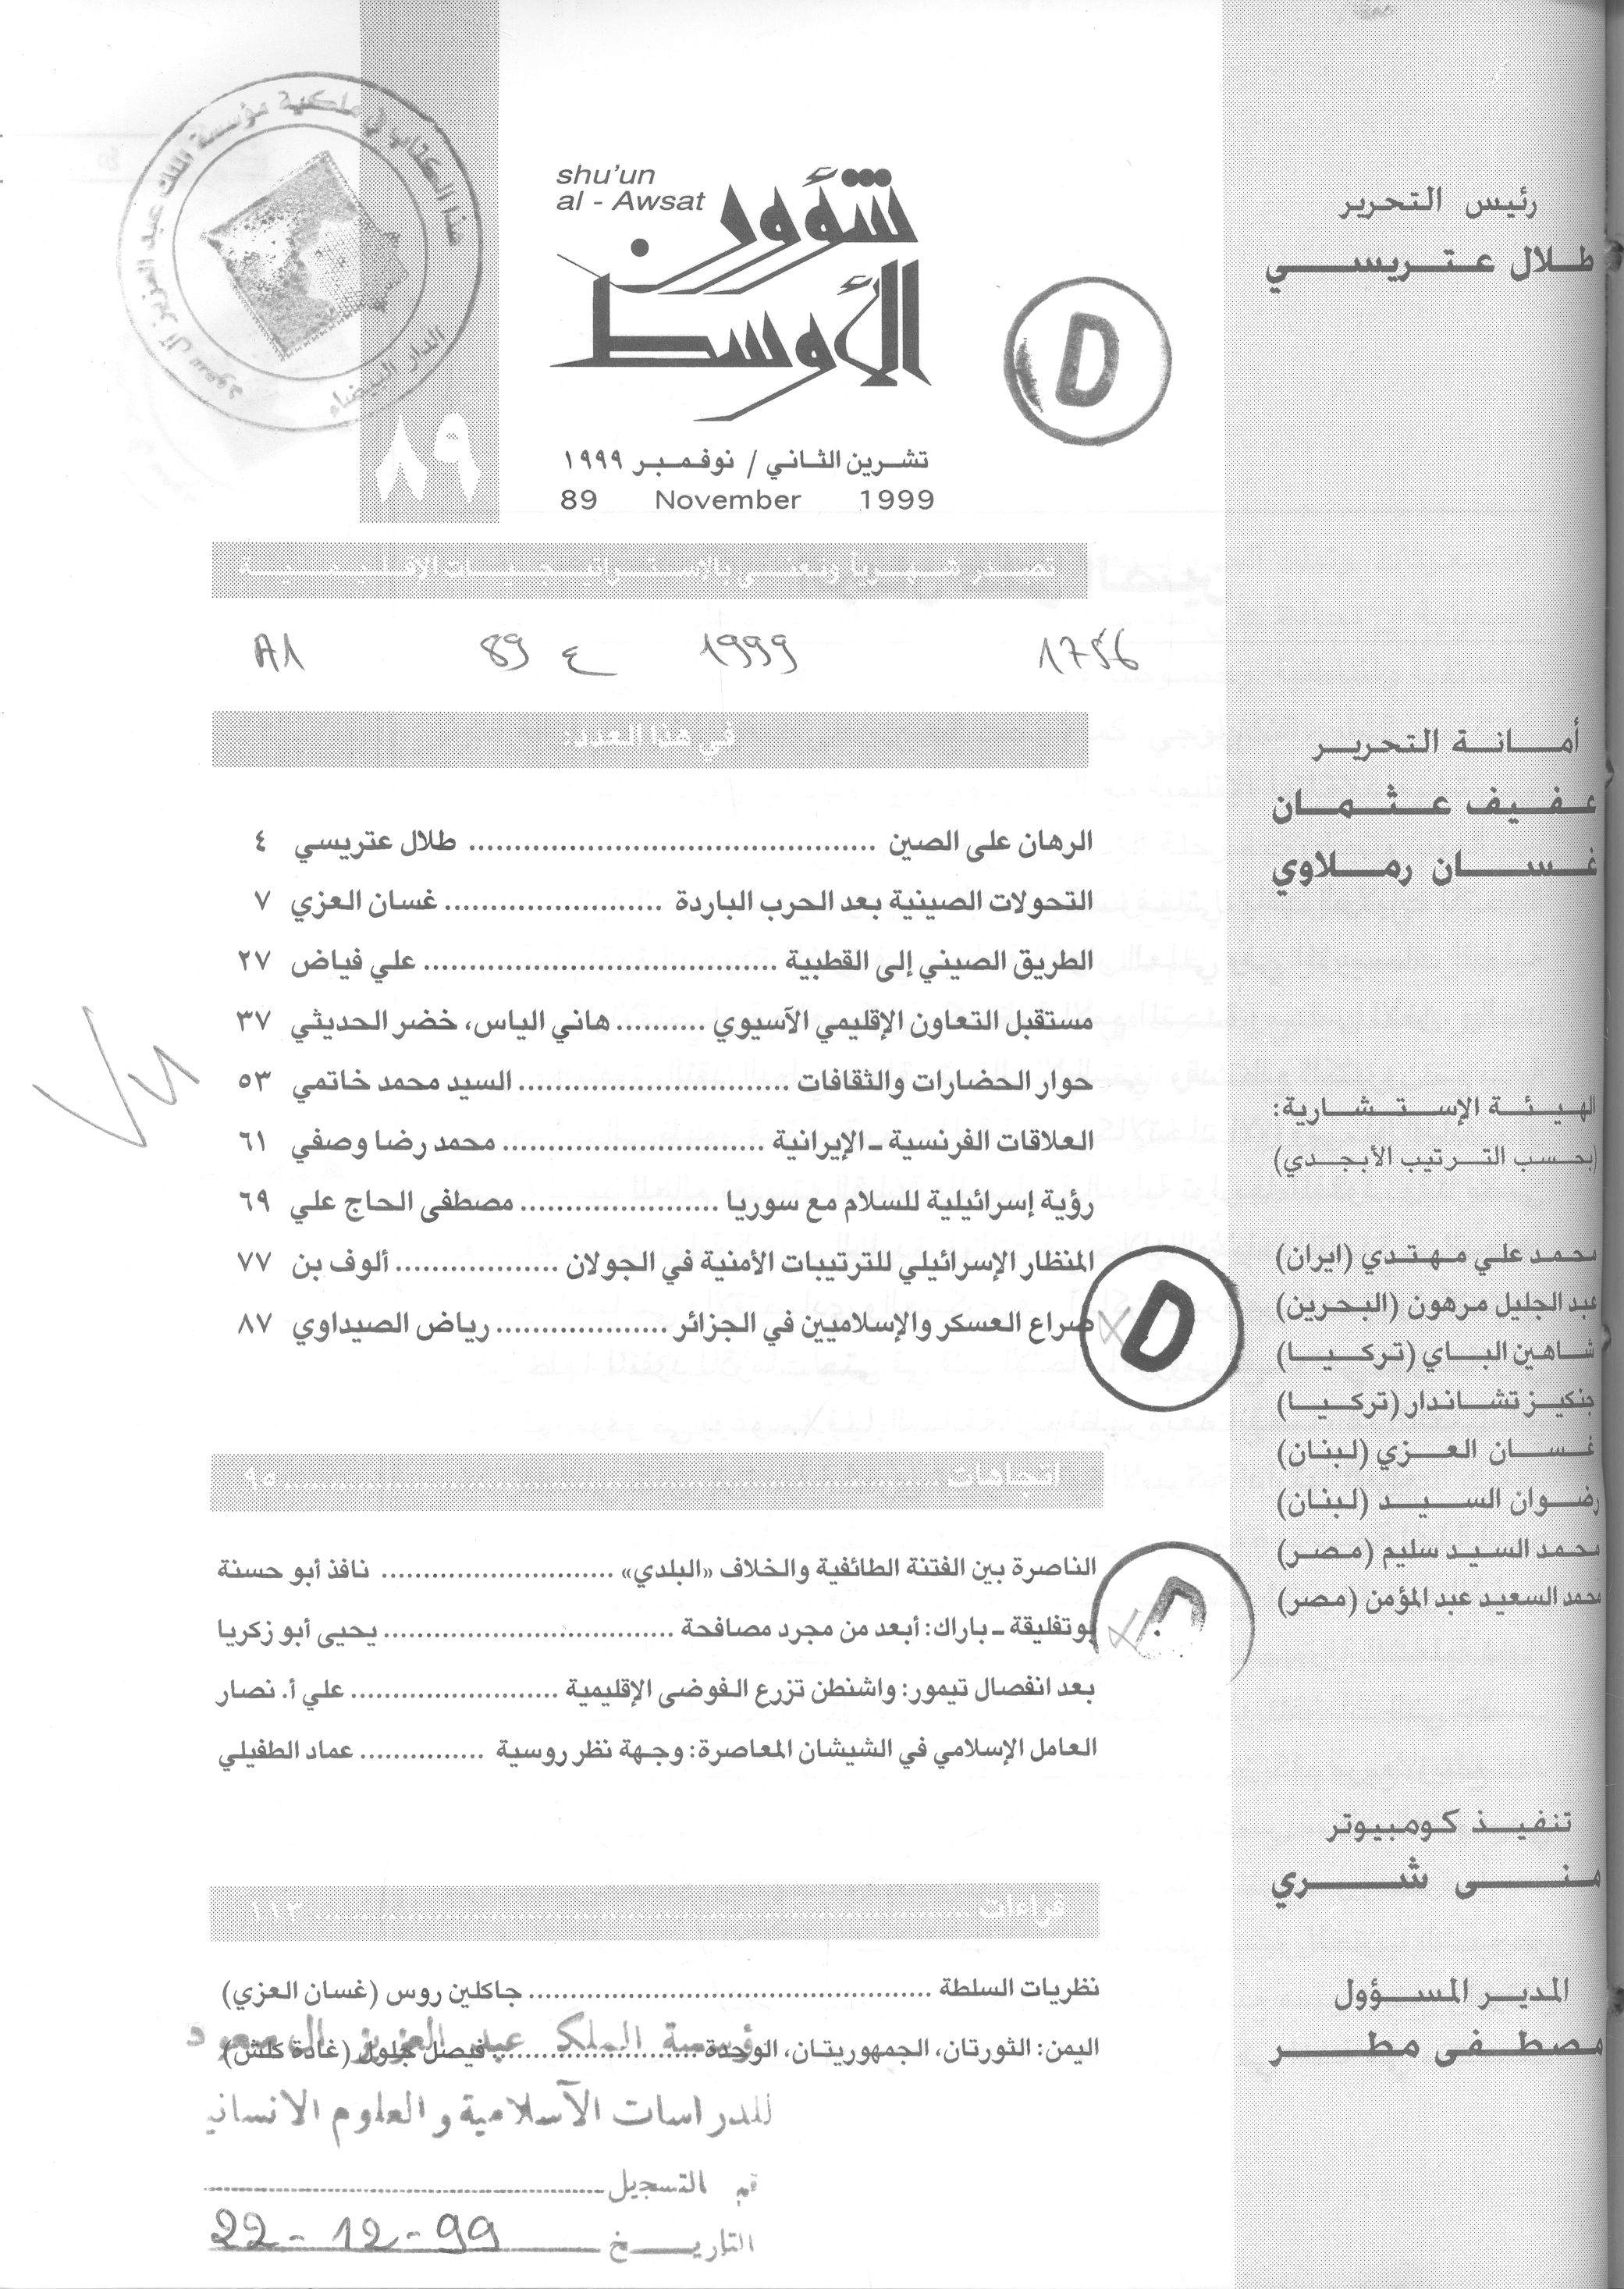 هذا الكتاب في ملكية مؤسسة الملك عبد العزيز آل سعود
الدار البيضاء
shu'un
al - Awsat
شؤون
الأوسط
D
٨٩
تشرين الثاني / نوفمبر ١٩٩٩
89 November 1999
تصدر شهرياً وتعنى بالإستراتيجيات الاقليمية
A1 89 ع 1999 1756
في هذا العدد:
الرهان على الصين ........................................ طلال عتريسي ٤
التحولات الصينية بعد الحرب الباردة ...................... غسان العزي ٧
الطريق الصيني إلى القطبية ................................... علي فياض ٢٧
مستقبل التعاون الإقليمي الآسيوي .......... هاني الياس، خضر الحديثي ٣٧
حوار الحضارات والثقافات .......................... السيد محمد خاتمي ٥٣
العلاقات الفرنسية ـ الإيرانية .......................... محمد رضا وصفي ٦١
رؤية إسرائيلية للسلام مع سوريا .................... مصطفى الحاج علي ٦٩
المنظار الإسرائيلي للترتيبات الأمنية في الجولان ................ ألوف بن ٧٧
صراع العسكر والإسلاميين في الجزائر ................. رياض الصيداوي ٨٧
D
Vu
اتجاهات ........................................ ٩٥
الناصرة بين الفتنة الطائفية والخلاف «البلدي» ........................ نافذ أبو حسنة
بوتفليقة ـ باراك: أبعد من مجرد مصافحة ............................. يحيى أبو زكريا
بعد انفصال تيمور: واشنطن تزرع الفوضى الإقليمية ..................... علي أ. نصار
العامل الإسلامي في الشيشان المعاصرة: وجهة نظر روسية ............. عماد الطفيلي
قراءات ........................................ ١١٣
نظريات السلطة ........................................ جاكلين روس (غسان العزي)
اليمن: الثورتان، الجمهوريتان، الوحدة ..................... فيصل جلول (غادة كلش)
مؤسسة الملك عبد العزيز آل سعود
للدراسات الآسلامية والعلوم الانسانية
رقم التسجيل
التاريخ 22-12-99
رئيس التحرير
طلال عتريسي
أمانة التحرير
عفيف عثمان
غسان رملاوي
الهيئة الإستشارية:
(بحسب الترتيب الأبجدي)
محمد علي مهتدي (ايران)
عبد الجليل مرهون (البحرين)
شاهين الباي (تركيا)
جنكيز تشاندار (تركيا)
غسان العزي (لبنان)
رضوان السيد (لبنان)
محمد السيد سليم (مصر)
محمد السعيد عبد المؤمن (مصر)
تنفيذ كومبيوتر
منى شري
المدير المسؤول
مصطفى مطر